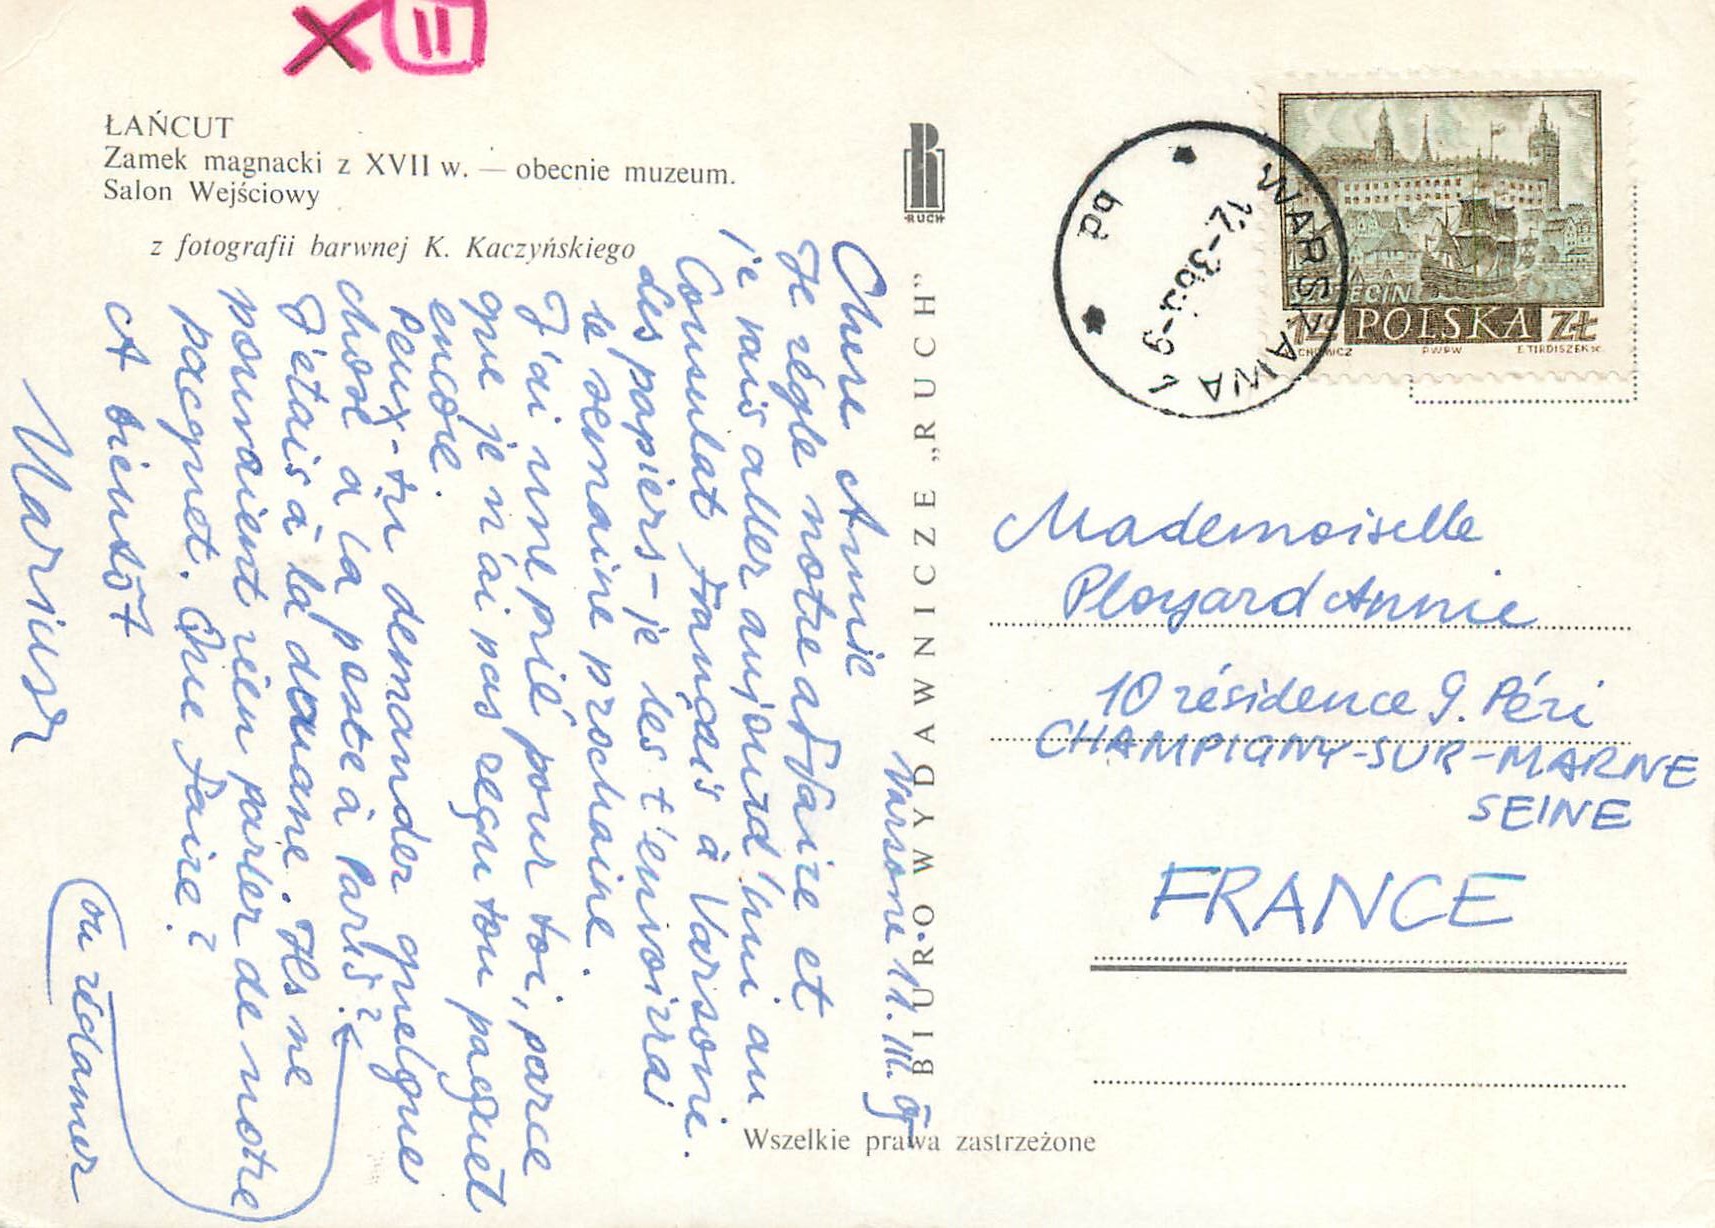 X 11
ŁAŃCUT
Zamek magnacki z XVII w. — obecnie muzeum.
Salon Wejściowy
z fotografii barwnej K. Kaczyńskiego
RUCH
BIURO WYDAWNICZE „RUCH”
Wszelkie prawa zastrzeżone
WARSZAWA 1
pq
SZCZECIN
POLSKA ZŁ
PWPW
E.TIRDISZEK sc.
Varsovie 11.III.
Chere Annie
Je règle notre affaire et
je vais aller aujourd'hui au
Consulat Français à Varsovie.
Les papiers – je les t'envoirrai
la semaine prochaine.
J'ai une prié pour toi, parce
que je n'ai pas reçu ton paquet
encore.
Peux-tu demander quelque
chose a la poste à Paris?
J'etais à la douane. Ils ne
pouvaient rien parler de notre
pacquet. Que faire?
A bientôt
Mariusz
ou réclamer
Mademoiselle
Ployard Annie
10 résidence G. Péri
CHAMPIGNY-SUR-MARNE
SEINE
FRANCE